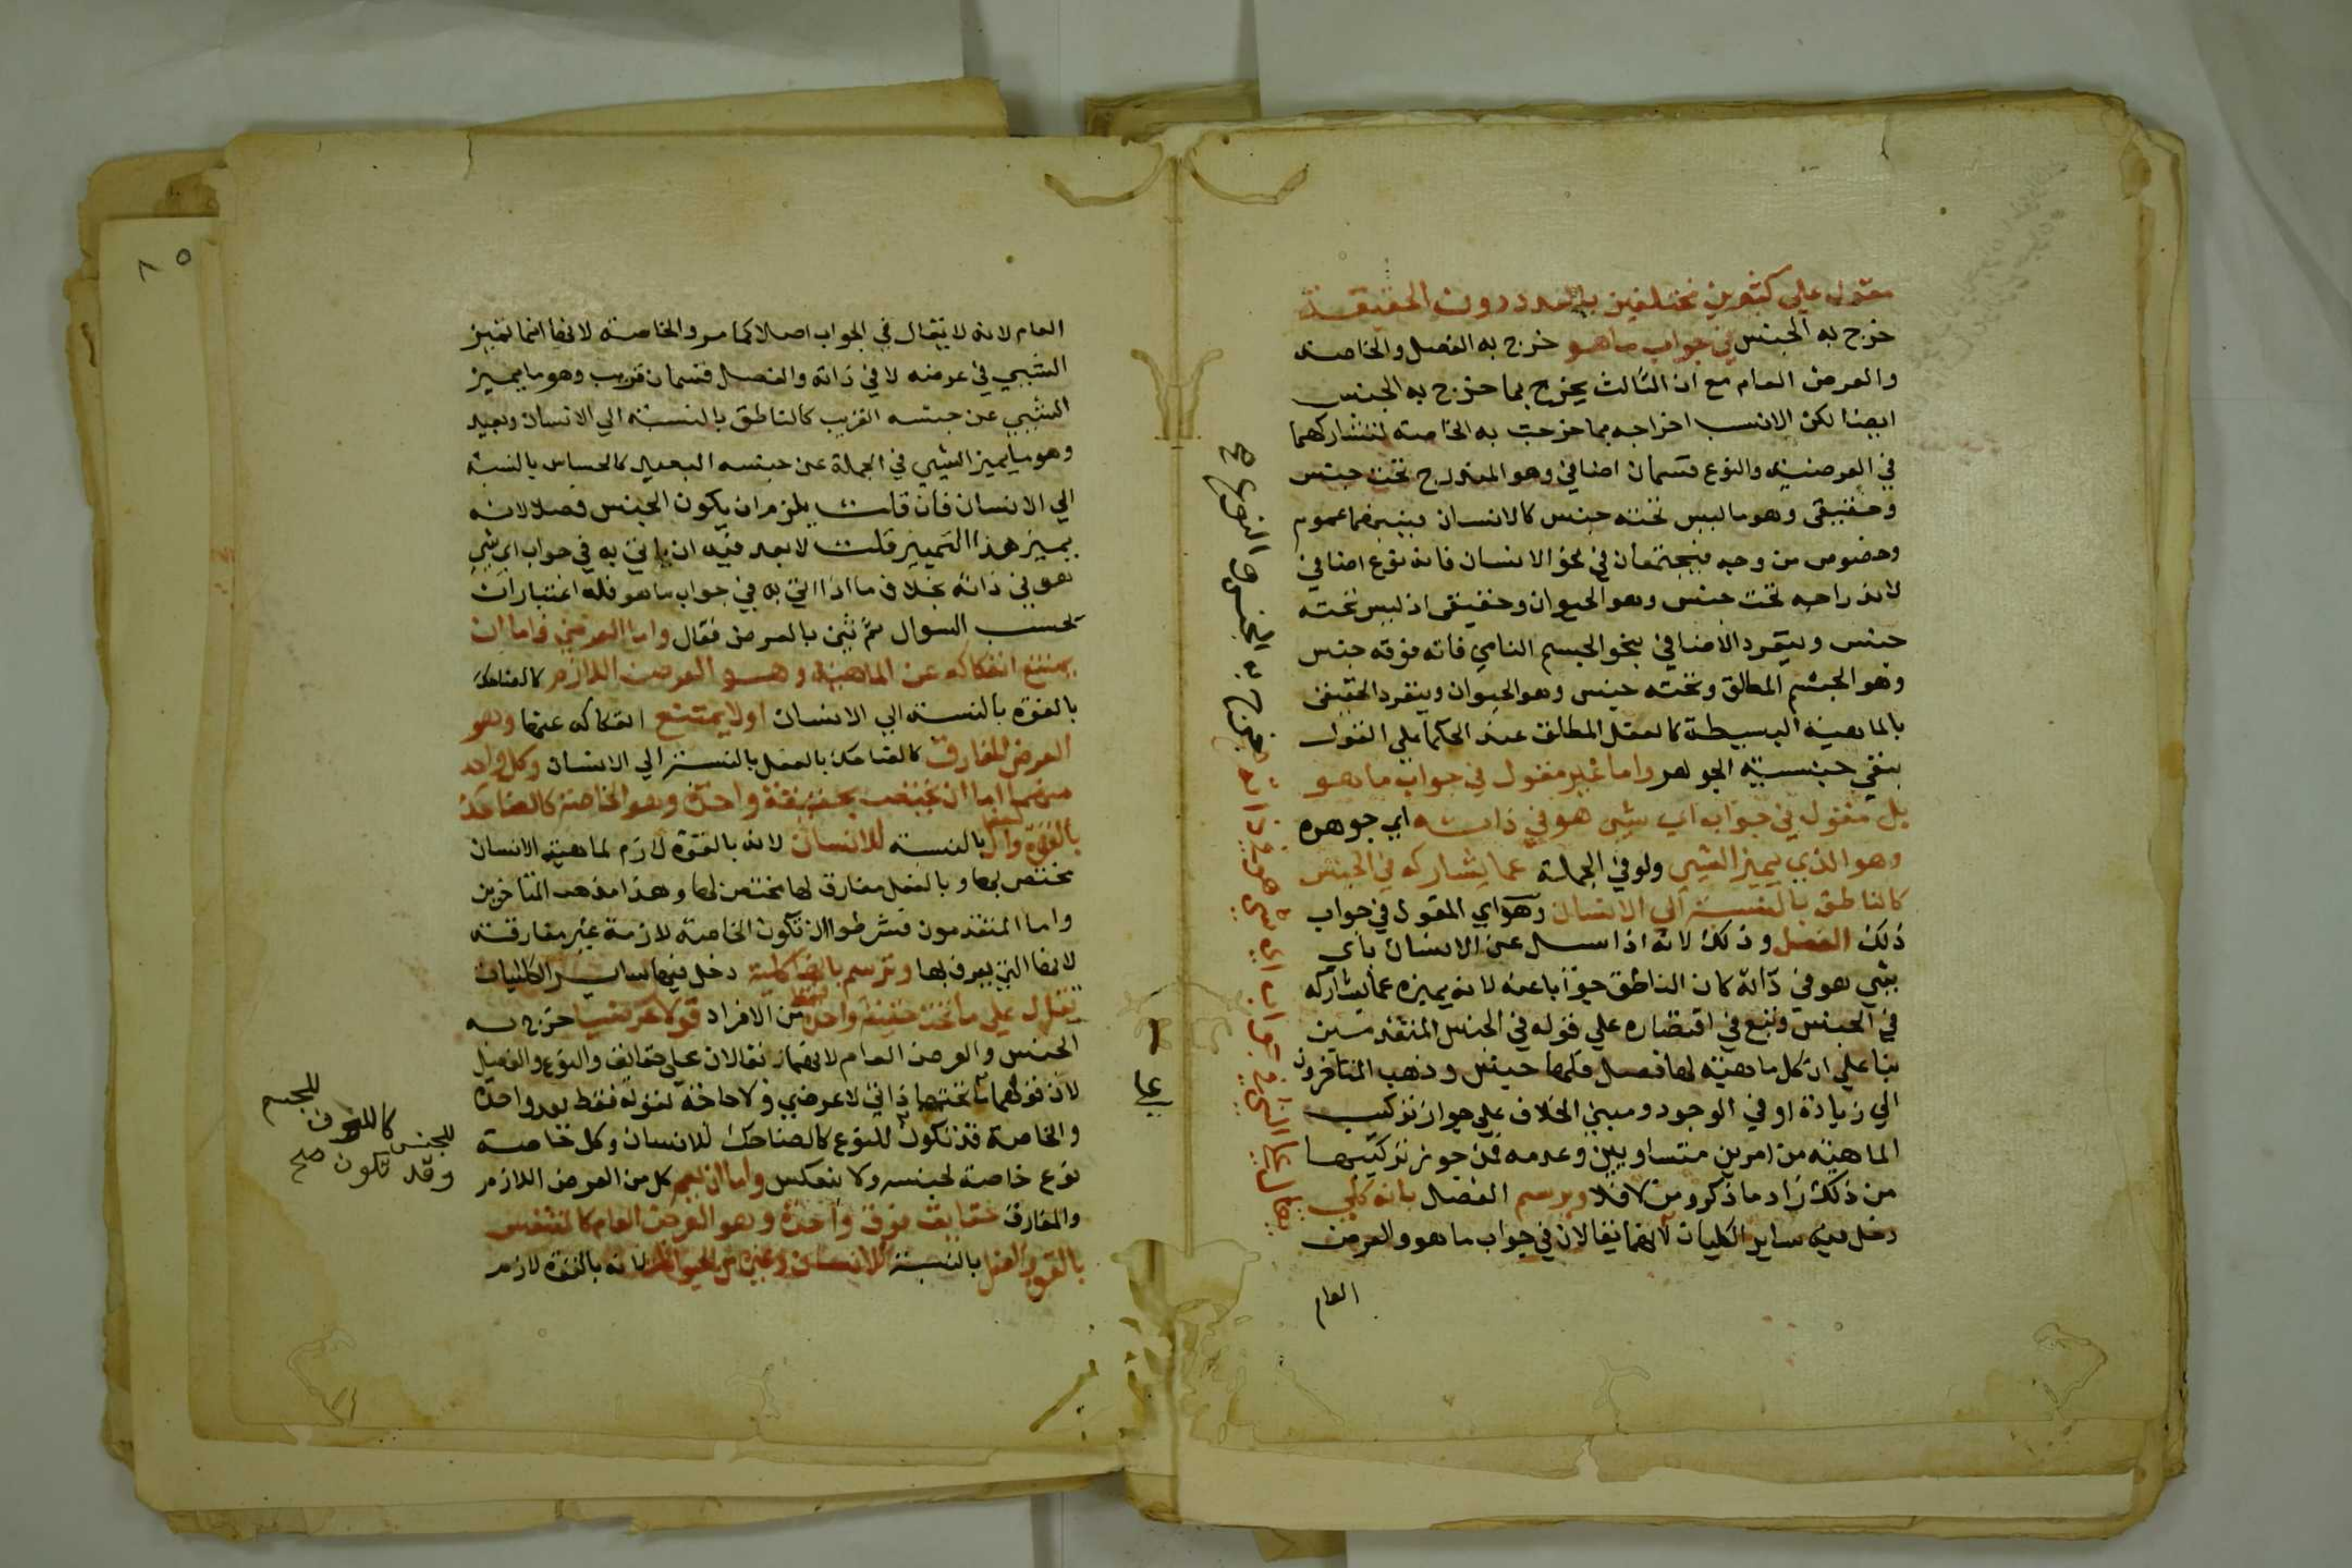 مقول علي كثيرين مختلفين بالعدد دون الحقيقة
خرج به الجنس في جواب ما هو خرج به الفصل والخاصة
والعرض العام مع ان الثالث يخرج بما خرج به الجنس
ايضا لكن الانسب اخراجه بما خرجت به الخاصة لتشاركهما
في العرضية والنوع قسمان اضافي وهو المندرج تحت جنس
وحقيقي وهو ما ليس تحته جنس كالانسان فبينهما عموم
وخصوص من وجه فيجتمعان في نحو الانسان فانه نوع اضافي
لاندراجه تحت جنس وهو الحيوان وحقيقي اذ ليس تحته
جنس وينفرد الاضافي بنحو الجسم النامي فانه فوقه جنس
وهو الجسم المطلق وتحته جنس وهو الحيوان وينفرد الحقيقي
بالماهية البسيطة كالعقل المطلق عند الحكما علي القول
بنفي جنسية الجوهر واما غير مقول في جواب ما هو
بل مقول في جواب اي شي هو في ذاته اي جوهره
وهو الذي يميز الشي ولو في الجملة عما يشاركه في الجنس
كالناطق بالنسبة الي الانسان وهو اي المقول في جواب
ذلك الفصل وذلك لانه اذا سل عن الانسان باي
شي هو في ذاته كان الناطق جوابا عنه لانه يميزه عما يشاركه
في الجنس وتبع في اقتصاره علي قوله في الجنس المتقدمين
بنا علي ان كل ماهية لها فصل فلها جنس وذهب المتاخرون
الي زيادة او في الوجود ومبني الخلاف علي جواز تركيب
الماهية من امرين متساويين وعدمه فمن جوز تركيبها
من ذلك زاد ما ذكر ومن لا فلا ويرسم الفصل بانه كلي
دخل فيه ساير الكليات لانهما يقالان في جواب ما هو والعرض
العام
يقال علي الشي في جواب اي شي هو في ذاته خرج به الجنس والنوع
العام لانه لا يقال في الجواب اصلا كما مر والخاصة لانها انما تميز
الشي في عرضه لا في ذاته والفصل قسمان قريب وهو ما يميز
الشي عن جنسه القريب كالناطق بالنسبة الي الانسان وبعيد
وهو ما يميز الشي في الجملة عن جنسه البعيد كالحساس بالنسبة
الي الانسان فان قلت يلزم ان يكون الجنس فصلا لانه
يميز هذا التمييز قلت لا بعد فيه ان ياتي به في جواب اي شي
هو في ذاته بخلاف ما اذا اتي به في جواب ما هو فله اعتبارات
بحسب السوال ثم ثني بالعرض فقال واما العرضي فاما ان
يمتنع انفكاكه عن الماهية وهو العرض اللازم كالضاحك
بالقوة بالنسبة الي الانسان او لا يمتنع انفكاكه عنها وهو
العرض المفارق كالضاحك بالفعل بالنسبة الي الانسان وكل واحد
منهما اما ان يختص بحقيقة واحدة وهو الخاصة كالضاحك
بالقوة والفعل بالنسبة للانسان لانه بالقوة لازم لماهية الانسان
مختص بها وبالفعل مفارق لها مختص لها وهذا مذهب المتاخرين
واما المتقدمون فشرطوا ان تكون الخاصة لازمة غير مفارقة
لانها التي يعرف بها وترسم بانها كلية دخل فيها ساير الكليات
تقال علي ما تحت حقيقة واحدة فقط من الافراد قولا عرضيا خرج به
الجنس والعرض العام لانهما يقالان علي حقائق والنوع والفصل
لان قولهما علي ما تحتهما ذاتي لا عرضي ولا حاجة لقوله فقط بعد واحدة
والخاصة قد تكون للنوع كالضاحك للانسان وكل خاصة
نوع خاصة لجنسه ولا ينعكس واما ان يعم كل من العرض اللازم
والمفارق حقايق فوق واحدة وهو العرض العام كالمتنفس
بالقوة والفعل بالنسبة للانسان وغيره من الحيوانات لانه بالقوة لازم
وقد تكون للجنس كاللون للجسم صح